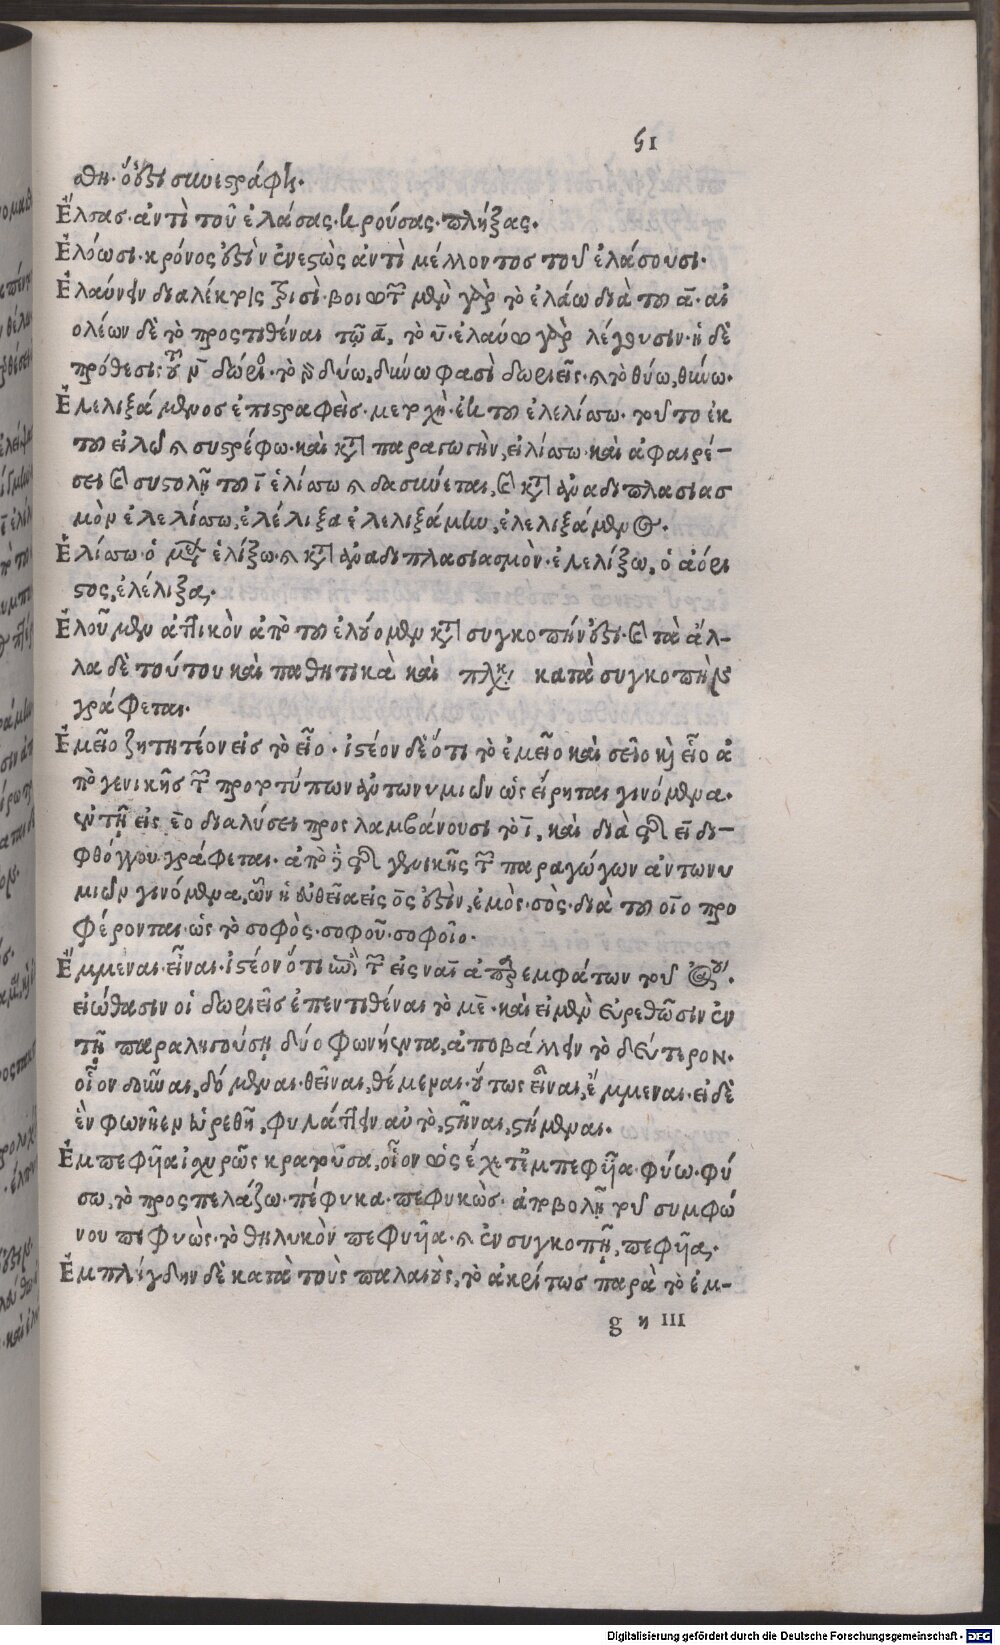 51
θη. οὕτωσι συνεγράφη.
Ἔλσας. ἀντὶ τοῦ ἐλάσας. κρούσας. πλήξας.
Ἐλόωσι. χρόνος ἐστὶν ἐνεστὼς ἀντὶ μέλλοντος τοῦ ἐλάσουσι.
Ἐλαύνειν διαλέκτοις ξισὶ. βοιωτῶν μὲν γὰρ τὸ ἐλάω διὰ τοῦ α. αἰ
ολέων δὲ τὸ προστιθέναι τῷ α, τὸ υ. ἐλαύω γὰρ λέγουσιν. ἡ δὲ
πρόθεσις τοῦ ν δωρι. τὸ δύω, δύνω φασὶ δωριεῖς. καὶ τὸ θύω, θύνω.
Ἐλελιξάμενος ἐπιστραφεὶς. μετοχὴ. ἐκ τοῦ ἐλελίσσω. τοῦτο ἐκ
τοῦ εἰλῶ καὶ συστρέφω. καὶ κατὰ παραγωγὴν, εἰλίσσω. καὶ ἀφαιρέ-
σει καὶ συστολῇ τοῦ ι ἑλίσσω καὶ δασύνεται, καὶ κατὰ ἀναδιπλασιασ
μὸν ἐλελίσσω, ἐλέλιξα ἐλελιξάμην, ἐλελιξάμενος.
Ἑλίσσω. ὁ μέλλων ἑλίξω. καὶ κατὰ ἀναδιπλασιασμὸν. ἐλελίξω, ὁ ἀόρι
στος, ἐλέλιξα,
Ἐλοῦμεν ἀττικὸν ἀπὸ τοῦ ἐλύομεν κατὰ συγκοπήν ἐστι. καὶ τὰ ἄλ-
λα δὲ τούτου καὶ παθητικὰ καὶ κατὰ συγκοπὴν
γράφεται.
Ἐμεῖο ζητητέον εἰς τὸ εἷο. ἰστέον δὲ ὅτι τὸ ἐμεῖο καὶ σεῖο καὶ εἷο ἀ
πὸ γενικῆς τῶν πρωτοτύπων ἀντωνυμιῶν ὡς εἴρηται γινόμενα.
ἐν τῇ εἰς εο διαλύσει προσλαμβάνουσι τὸ ι, καὶ διὰ τῆς ει δι-
φθόγγου γράφεται. ἀπὸ δὲ τῆς γενικῆς τῶν παραγώγων ἀντωνυ
μιῶν γινόμενα, ὧν ἡ εὐθεῖα εἰς ος ἐστὶν, ἐμὸς. σὸς. διὰ τοῦ οιο προ
φέρονται. ὡς τὸ σοφὸς. σοφοῦ. σοφοῖο.
Ἔμμεναι. εἶναι. ἰστέον ὅτι ἐπὶ τῶν εἰς ναι ἀπαρεμφάτων τοῦ
εἰώθασιν οἱ δωριεῖς ἐπεντιθέναι τὸ με. καὶ εἰ μὲν εὑρεθῶσιν ἐν
τῇ παραληγούσῃ δύο φωνήεντα, ἀποβάλλειν τὸ δεύτερον.
οἷον δοῦναι, δόμεναι. θεῖναι, θέμεναι. οὕτως εἶναι, ἔμμεναι. εἰ δὲ
ἓν φωνῆεν εὑρεθῇ, φυλάττειν αὐτὸ, στῆναι, στήμεναι.
Ἐμπεφυῖα ἰσχυρῶς κρατοῦσα, οἷον ὡς ἔχετ' ἐμπεφυῖα. φύω. φύ
σω, τὸ προσπελάζω. πέφυκα. πεφυκὼς. ἀποβολῇ τοῦ συμφώ
νου πεφυὼς. τὸ θηλυκὸν πεφυυῖα. καὶ ἐν συγκοπῇ, πεφυῖα,
Ἐμπλήγδην δὲ κατὰ τοὺς παλαιοὺς, τὸ ἀκρίτως παρὰ τὸ ἐμ-
g η III
Digitalisierung gefördert durch die Deutsche Forschungsgemeinschaft - DFG